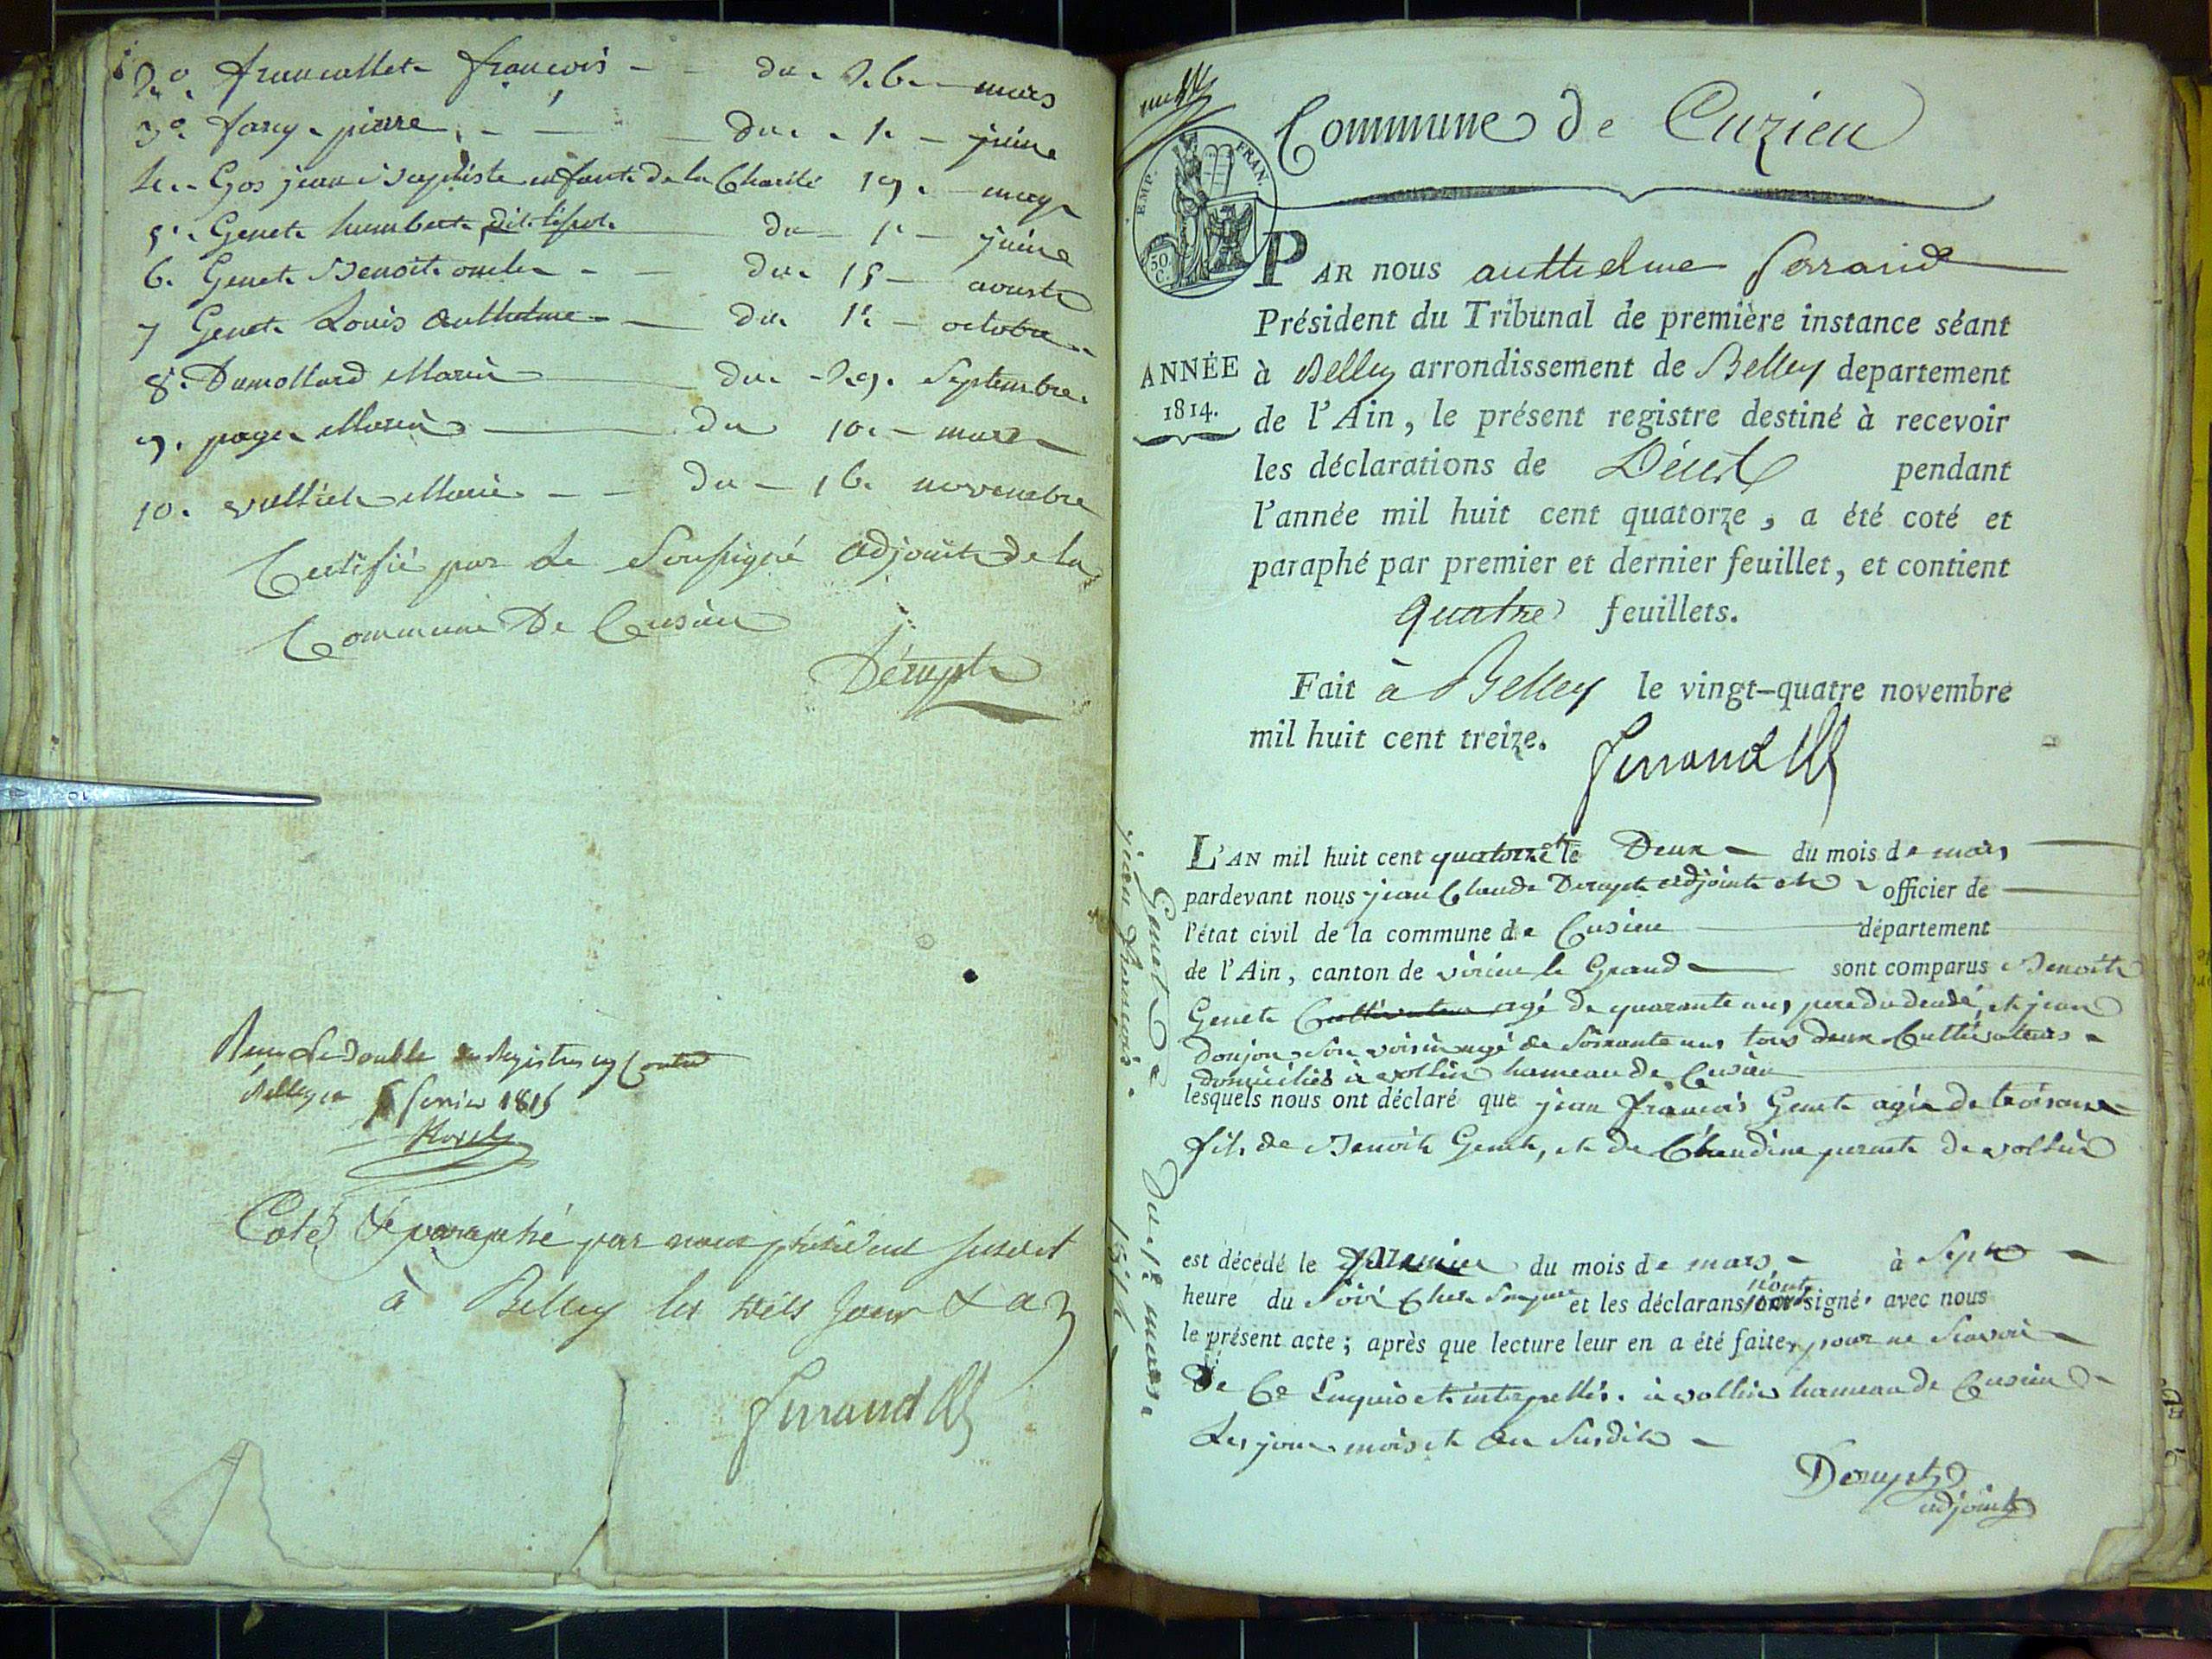 2.° francallet françois - - du - 26 - mars
3.° farcy pierre - - - du - 1er - juine
4. Gos jean Baptiste enfant de la Charité 19. - may
5. Genet humbert dit - du - 1er - juine
6. Genet Benoit oncle - - du 15 - aoust
7 Genet Louis Anthelme - - du 1er - octobre
8. Dumollard Marie - du - 29. Septembre.
9. page Marie - du 10. - mars
10. Marie - - du - 16. novembre
Certifié par Le Soussigné adjoint de la
Commune De Cusieu
Derupt
Reçu Le double
Belley ce 5 fevrier 1815
Coté & paraphé par nous président susdit
à Belley les dits Jour & an
ferrand
Commune de Cuzieu
EMP. FRAN.
50 C.
PAR nous anthelme ferrand
Président du Tribunal de première instance séant
ANNÉE
1814.
à Belley arrondissement de Belley departement
de l'Ain, le présent registre destiné à recevoir
les déclarations de Décès pendant
l'année mil huit cent quatorze, a été coté et
paraphé par premier et dernier feuillet, et contient
quatre feuillets.
Fait à Belley le vingt-quatre novembre
mil huit cent treize.
ferrand
Genet
jean françois.
Du 1er mars
1814
L'AN mil huit cent quatorze le Deux du mois de mars
pardevant nous jean Claude Derupt adjoint et officier de
l'état civil de la commune de Cusieu département
de l'Ain, canton de virieu le Grand sont comparus Benoit
Genet Cultivateur agé de quarante ans pere du decedé, et jean
donjon son voisin agé de soixante ans tous deux Cultivateurs
domiciliés à vollien hameau de Cusieu
lesquels nous ont déclaré que jean françois Genet agée de trois ans
fils de Benoit Genet, et de Claudine pernet de vollien
est décédé le premier du mois de mars à Sept
heure du soir et les déclarans n'ont signé avec nous
le présent acte; après que lecture leur en a été faite, pour ne Scavoir
De Ce Enquis et interpellés. à vollien hameau de Cusieu
Les jour mois et an Susdits
Derupt
adjoint